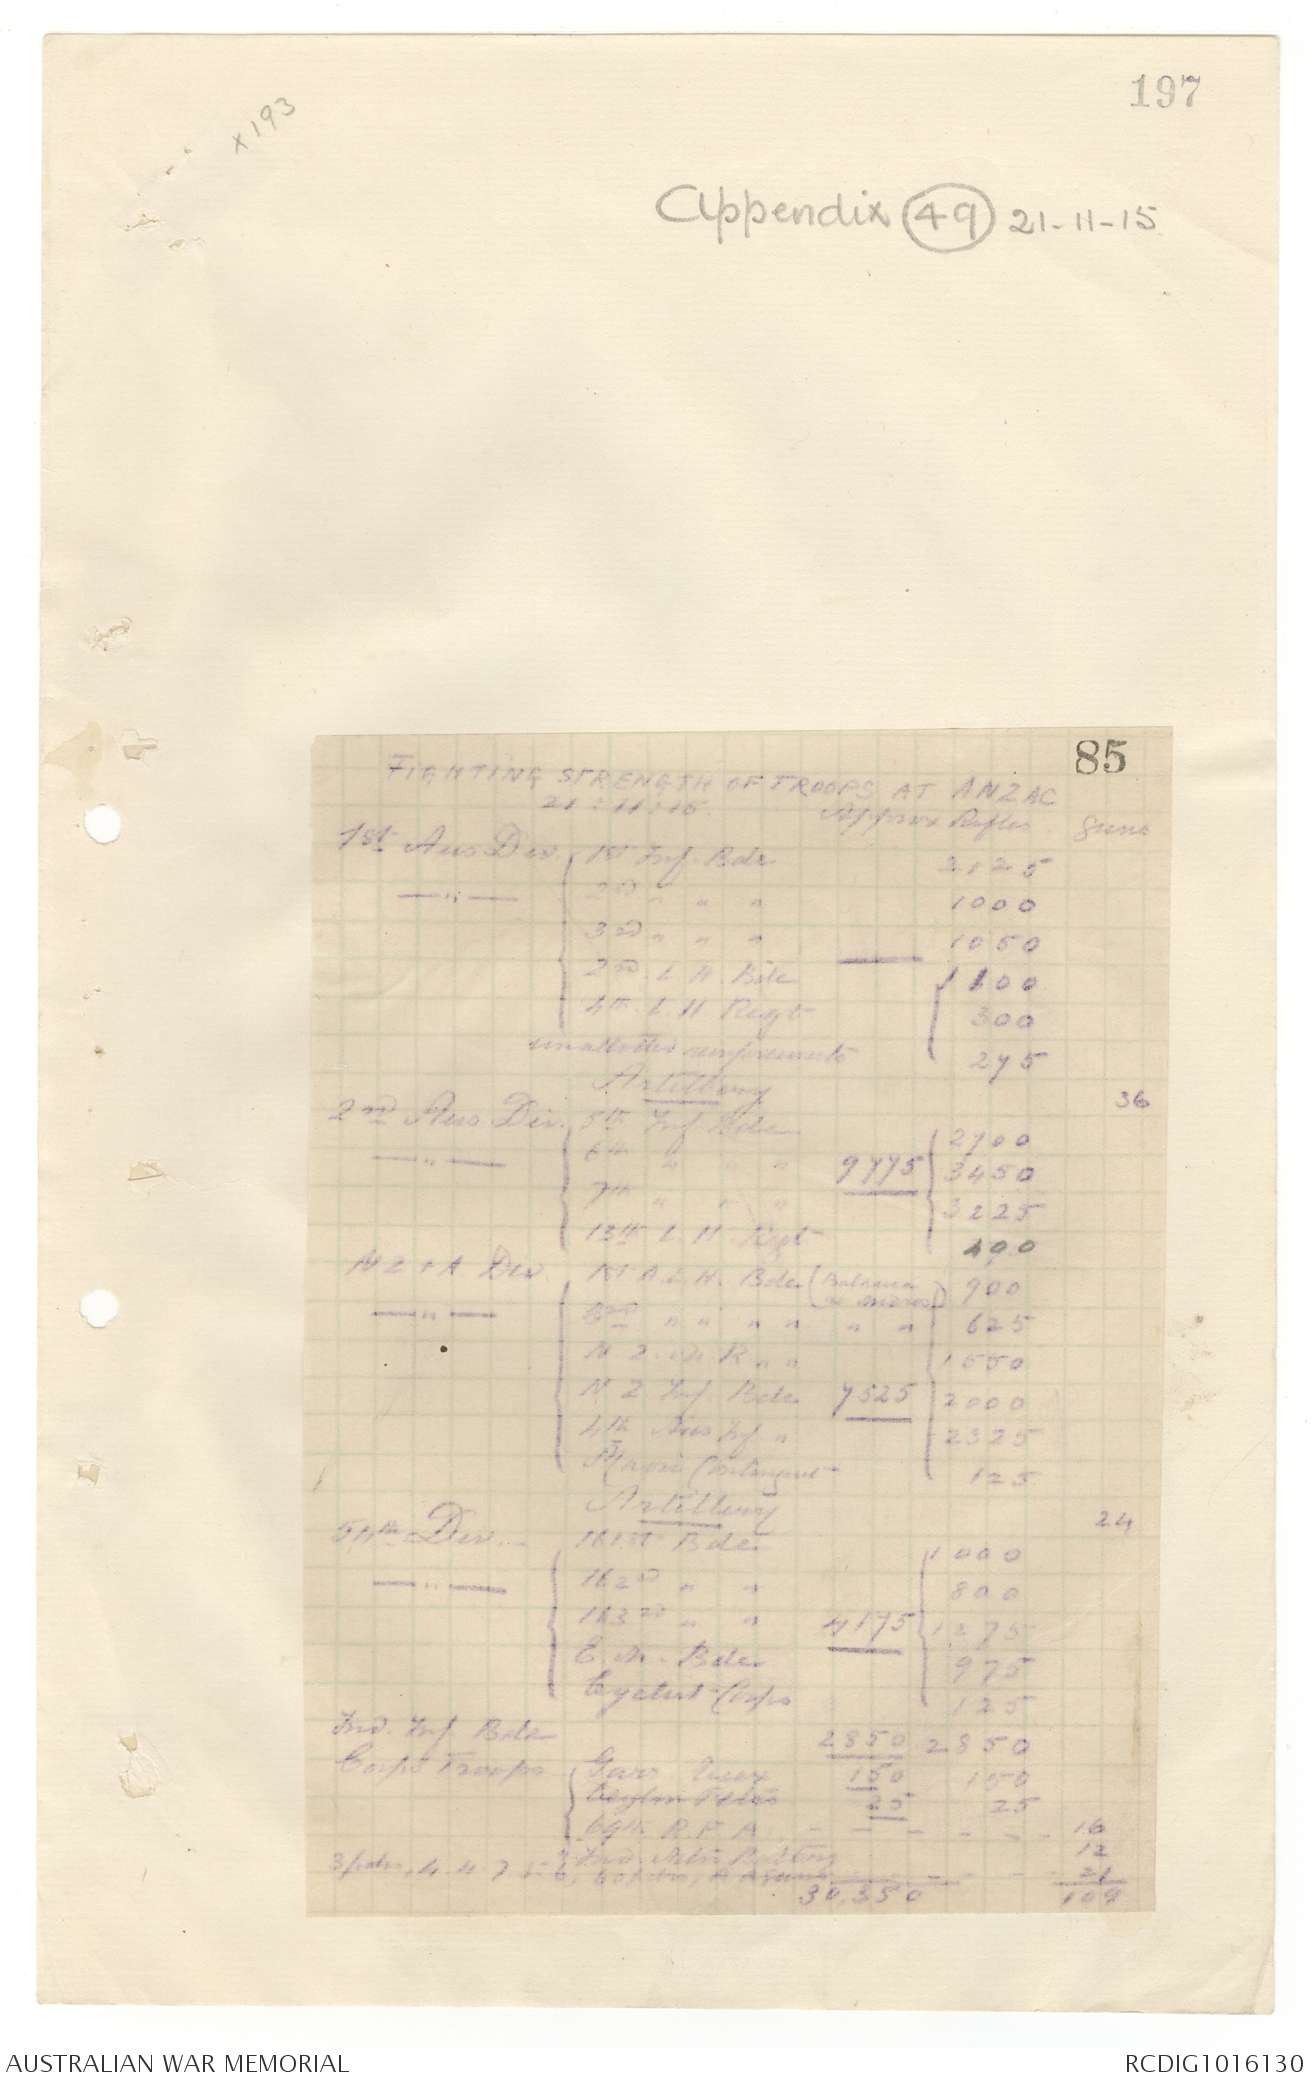 197
x 193
Appendix 49 21-11-15
85
FIGHTING STRENGTH OF TROOPS AT ANZAC
21:11:15. Approx Rifles Guns
1st Aus Div. 1st Inf. Bde 2125
—"— 2nd " " " 1000
3rd " " " 1050
2nd L H Bde 1100
4th L H Regt 300
unallotted reinforcements 275
Artillery 36
2nd Aus Div. 5th Inf Bde 2700
—"— 6th " " " 9775 3450
7th " " " 3225
13th L. H. Regt 400
N Z & A Div. 1st A. L. H. Bde (Balance at Mudros) 900
—"— 3rd " " " " " " 625
N Z M R " " 1550
N Z Inf. Bde 7525 2000
4th Aus Inf " 2325
Maori Contingent 125
Artillery 24
54th Div. 161st Bde 1000
—"— 162nd " " 800
163rd " " 4175 1275
E. M. Bde 975
Cyclist Corps 125
Ind. Inf Bde 2850 2850
Corps Troops 150 150
Ceylon 25 25
69th R. F. A - - - - - - 16
Ind. Mtn Battery 12
3 pdrs, 4.7 6" A A Guns - - - 21
30,350 109
AUSTRALIAN WAR MEMORIAL RCDIG1016130